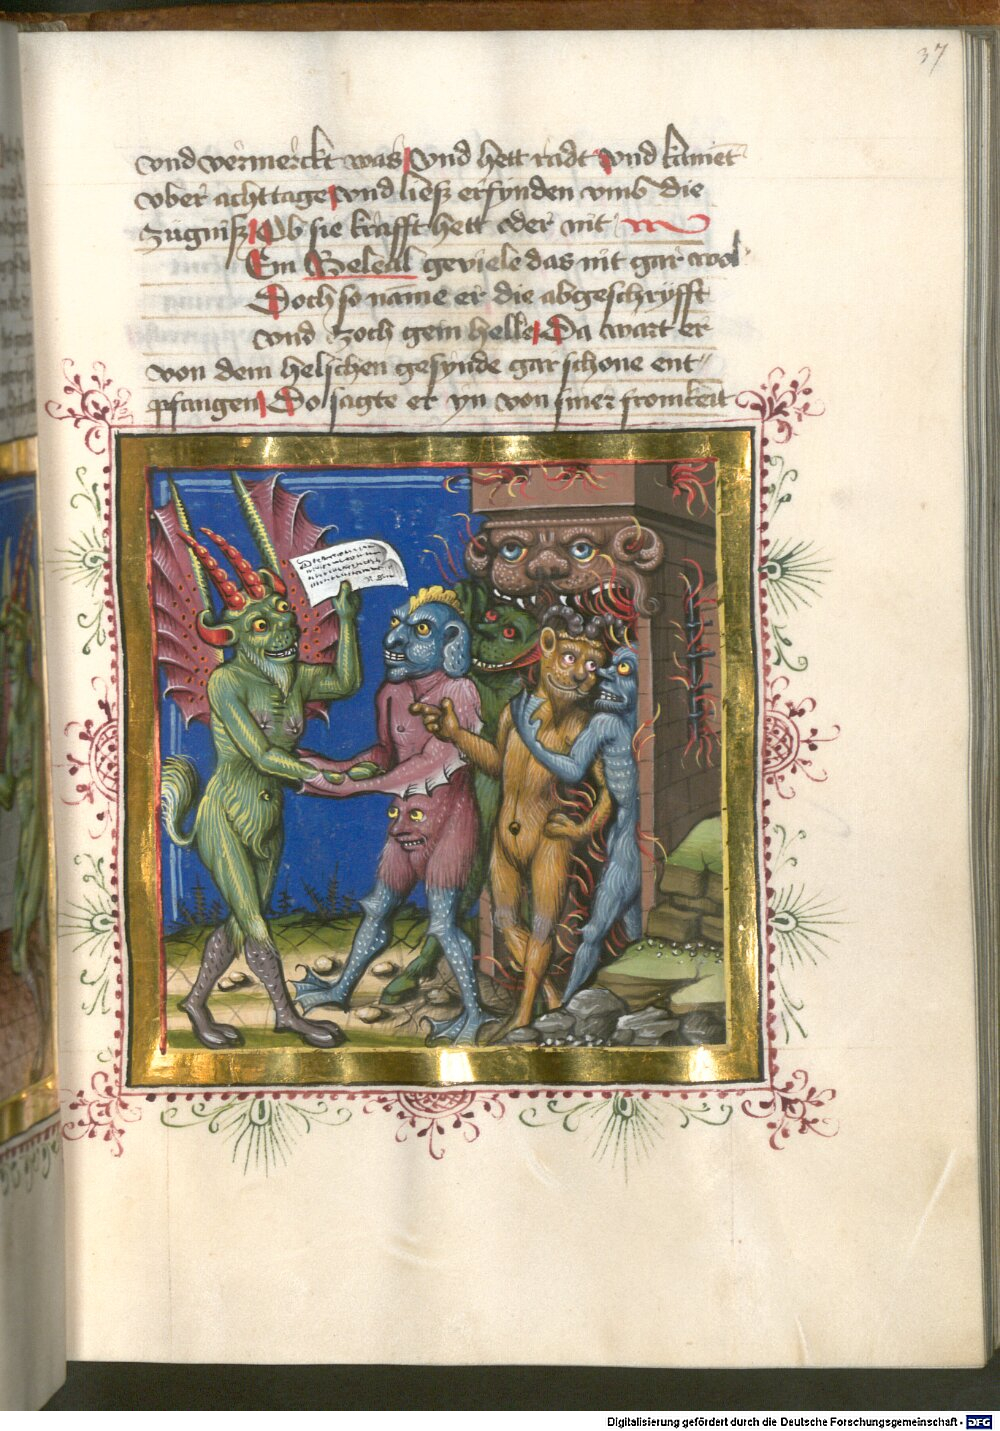 37
vnd vermerckt was vnd hett radt vnd kumet
vber acht tage vnd liesz erfynden vmb die
zúgnisz Ob sie krafft hett oder nit
Em Beleal geviele das nit gar wol
Doch so name er die abgeschryfft
vnd zoch gein helle Da wart er
von dem helschen gesynde gar schone ent〃
pfangen Do sagte er yn von siner fromkeit
Digitalisierung gefördert durch die Deutsche Forschungsgemeinschaft - DFG